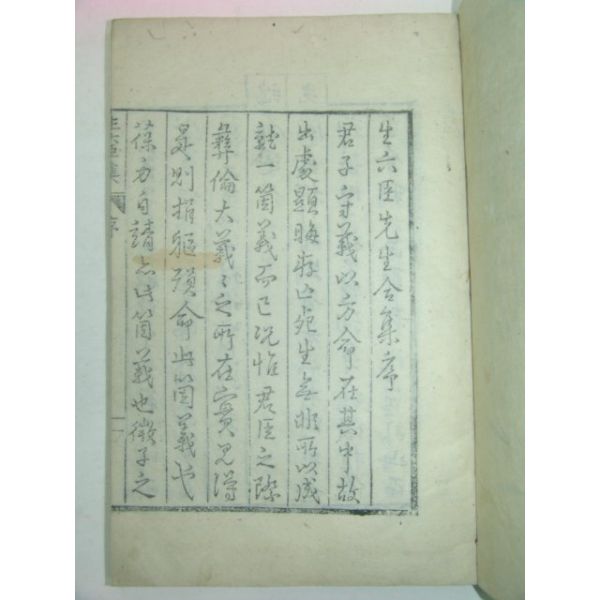 生六臣先生合集序
君子守義以方命在其中故
出處顯晦存亡死生無非所以成
就一箇義而已況惟君臣之際
彝倫大義〻之所在實見得
是則捐軀殞命此箇義也
葆身自請亦此箇義也微子之
生六臣集 序 一